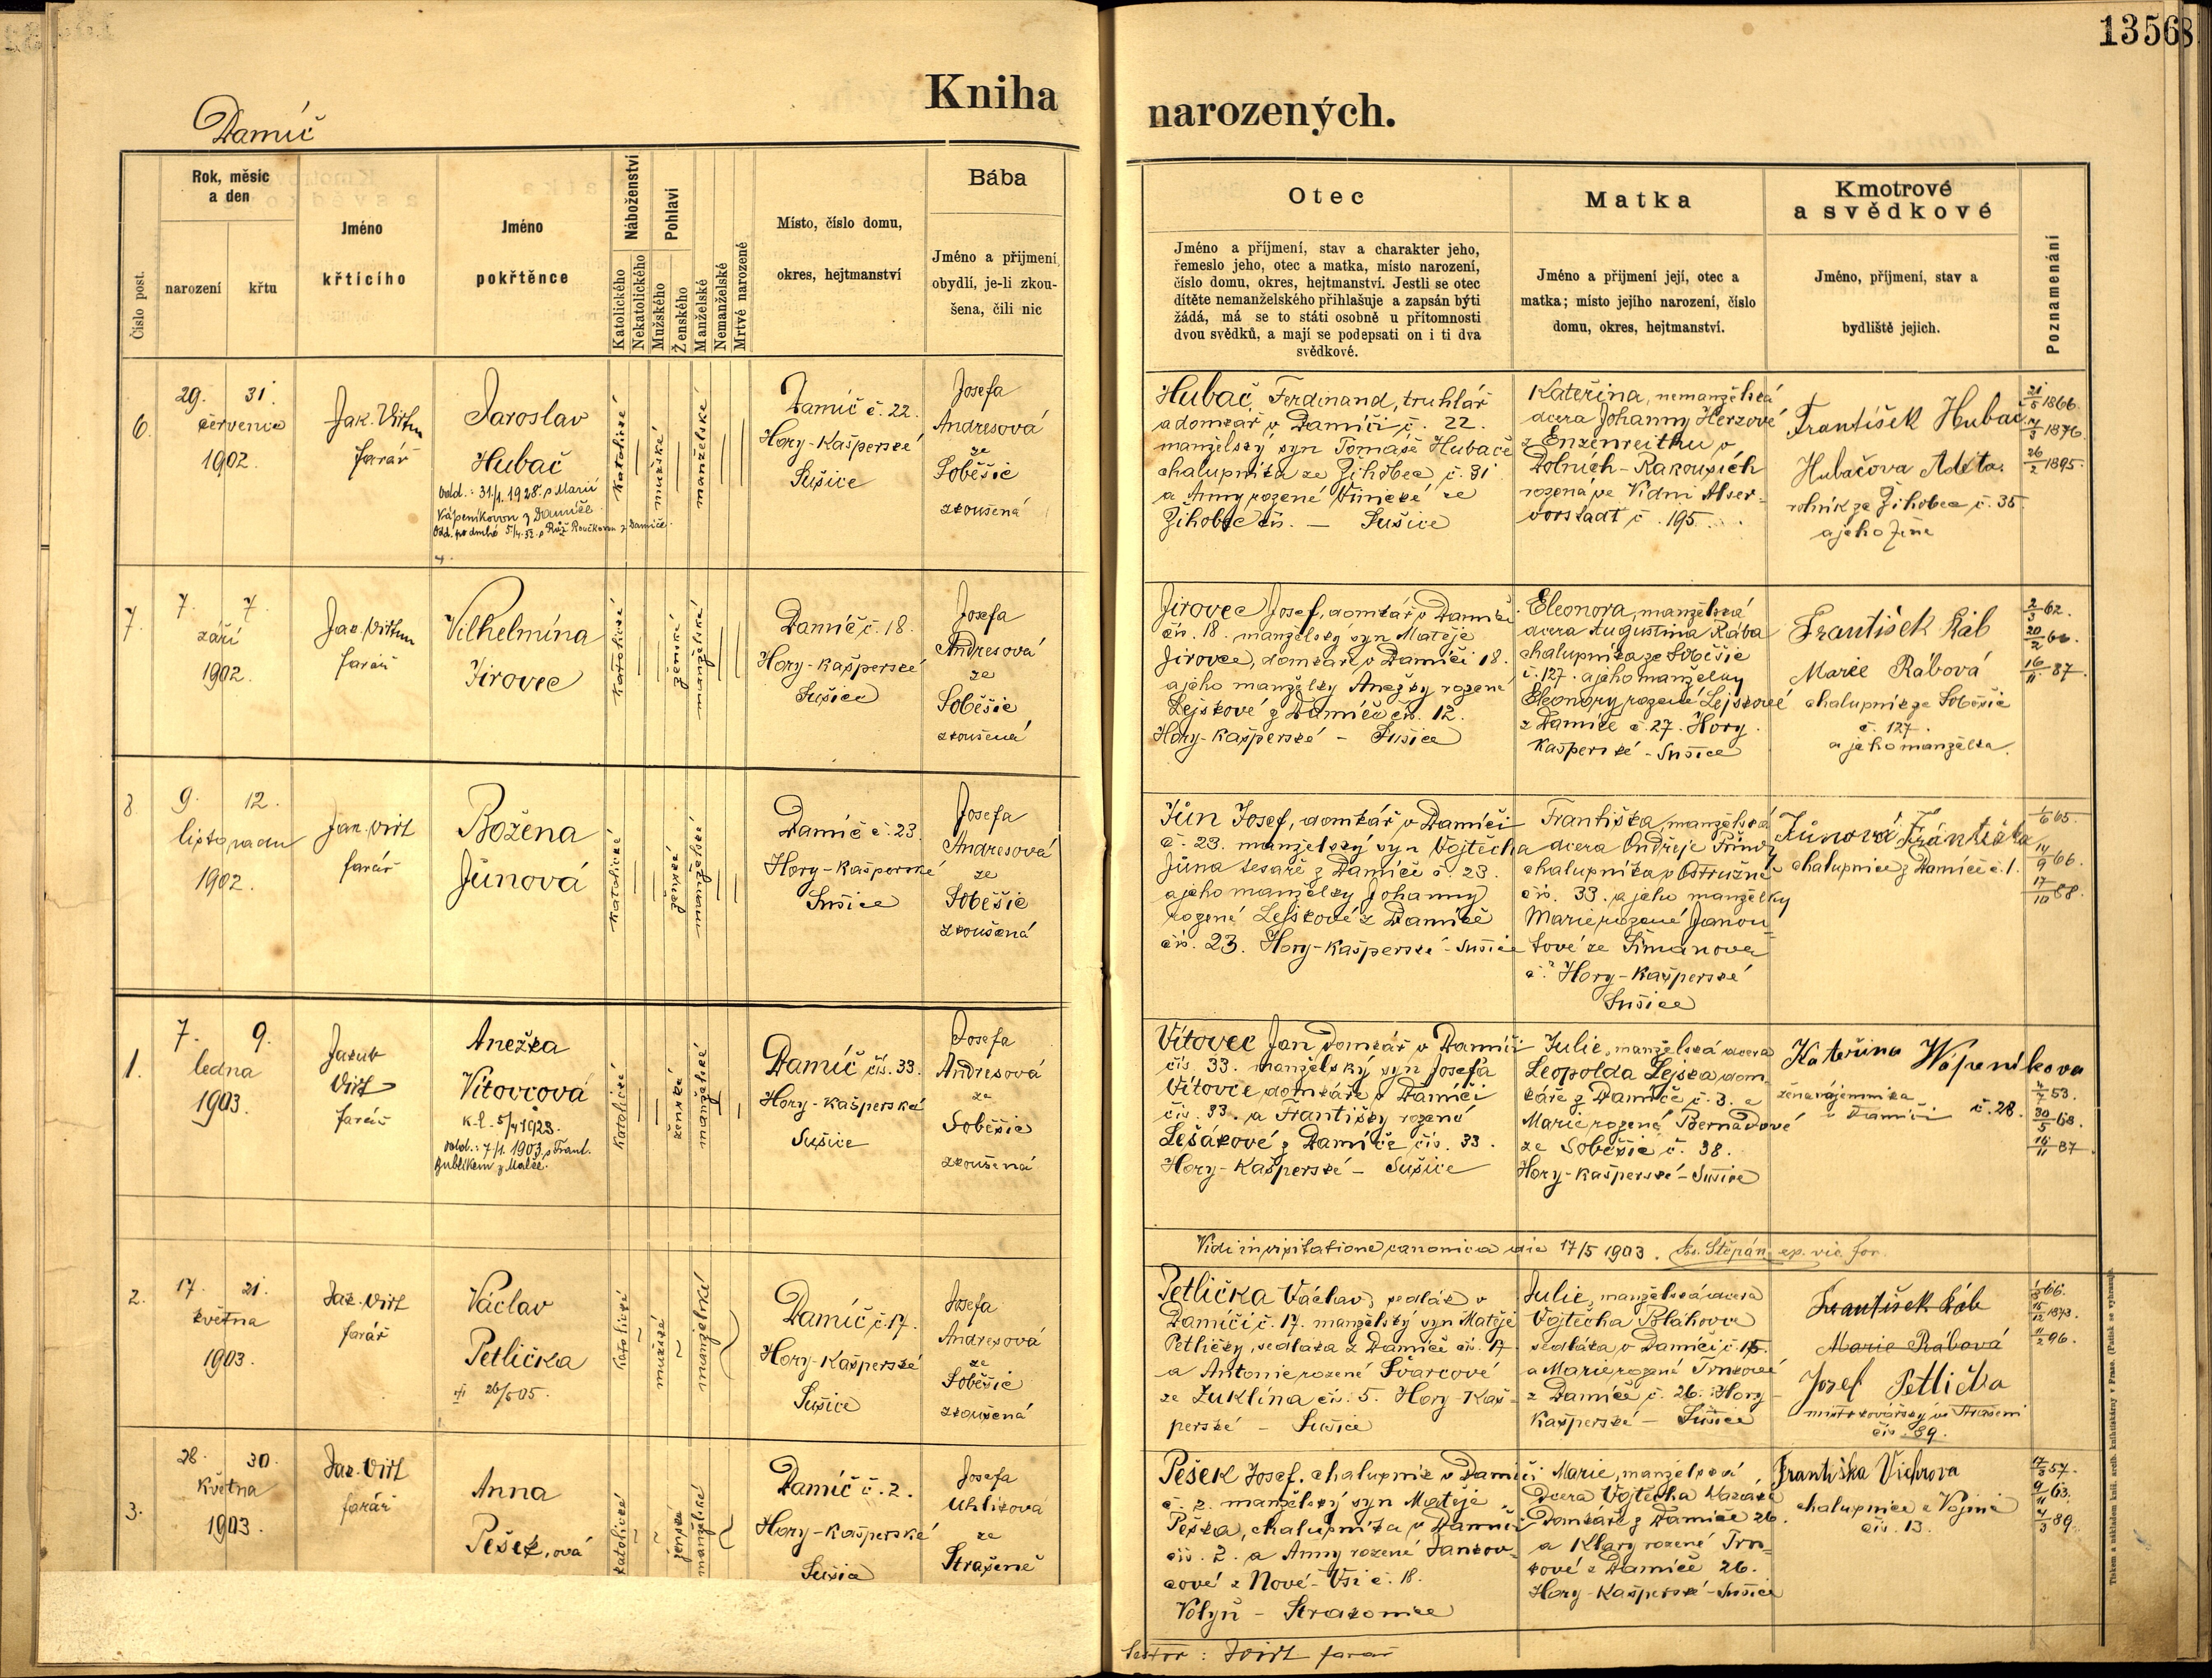 13568
Kniha narozených.
Damíč
Číslo post.
Rok, měsíc a den
narození
křtu
Jméno křtícího
Jméno pokřtěnce
Náboženství
Katolického
Nekatolického
Pohlaví
Mužského
Ženského
Manželské
Nemanželské
Mrtvé narozené
Místo, číslo domu,
okres, hejtmanství
Bába
Jméno a příjmení,
obydlí, je-li zkou-
šena, čili nic
Otec
Jméno a příjmení, stav a charakter jeho,
řemeslo jeho, otec a matka, místo narození,
číslo domu, okres, hejtmanství. Jestli se otec
dítěte nemanželského přihlašuje a zapsán býti
žádá, má se to státi osobně u přítomnosti
dvou svědků, a mají se podepsati on i ti dva
svědkové.
Matka
Jméno a příjmení její, otec a
matka; místo jejího narození, číslo
domu, okres, hejtmanství.
Kmotrové
a svědkové
Jméno, příjmení, stav a
bydliště jejich.
Poznamenání
6.
29. 31.
července
1902.
Jak. Virt
farář
Jaroslav
Hubač
odd.: 31/1. 1928. s Marií
Vápeníkovou z Damíče
Odd. po druhé 5/4. 32. s Růž. Roučkovou z Damíče.
katolické
mužské
manželské
Damíč č. 22.
Hory-Kašperské
Sušice
Josefa
Andresová
ze
Soběšic
zkoušená
Hubač Ferdinand, truhlář
a domkář v Damíči č. 22.
manželský syn Tomáše Hubače
chalupníka ze Žihobec č. 31
a Anny rozené ze
Žihobec čís. — Sušice
Kateřina, nemanželská
dcera Johanny Herzové
z Enzenreithu v
Dolních-Rakousích
rozená ve Vídni Alser-
vorstadt č. 195.
František Hubač
Hubačova Adéta
rolník ze Žihobec č. 35.
a jeho žena
21/5 1866.
4/3 1876.
26/2 1895.
7.
7. 7.
září
1902.
Jak. Virt
farář
Vilhelmína
Jirovec
katolické
ženské
manželské
Damíč č. 18.
Hory-Kašperské
Sušice
Josefa
Andresová
ze
Soběšic
zkoušená
Jirovec Josef, domkář v Damíči
čís. 18. manželský syn Matěje
Jirovce, domkáře v Damíči 18.
a jeho manželky Anežky rozené
Lejskové z Damíče čís. 12.
Hory-Kašperské - Sušice
Eleonora, manželská
dcera Augustina Rába
chalupníka ze Soběšic
č. 127. a jeho manželky
Eleonory rozené Lejskové
z Damíče č. 27. Hory
Kašperské - Sušice
František Ráb
Marie Rábová
chalupník ze Soběšic
č. 127.
a jeho manželka.
2/3 62.
20/2 66.
16/11 87.
8
9. 12.
listopadu
1902.
Jak. Virt
farář
Božena
Jůnová
katolické
ženské
manželské
Damíč č. 23.
Hory-Kašperské
Sušice
Josefa
Andresová
ze
Soběšic
zkoušená
Jůn Josef, domkář v Damíči
č. 23. manželský syn Vojtěcha
Jůna tesaře z Damíče č. 23.
a jeho manželky Johanny
rozené Lejskové z Damíče
čís. 23. Hory-Kašperské - Sušice
Františka, manželská
dcera Ondřeje
chalupníka v Ostružně
čís. 33. a jeho manželky
Marie rozené Janou-
tové ze Šimanova
č. ? Hory-Kašperské
Sušice
Jůnová Františka
chalupnice z Damíče č. 1.
1/6 65.
14/9 66.
17/10 88.
1.
7. 9.
ledna
1903.
Jakub
Virt
farář
Anežka
Vítovcová
K.l. 5/4 1923.
odd.: 7/1. 1903 s Frant.
katolické
ženské
manželské
Damíč čís. 33.
Hory-Kašperské
Sušice
Josefa
Andresová
ze
Soběšic
zkoušená
Vítovec Jan domkář v Damíči
čís. 33. manželský syn Josefa
Vítovce domkáře v Damíči
čís. 33. a Františky rozené
Lešákové z Damíče čís. 33.
Hory-Kašperské - Sušice
Julie, manželská dcera
Leopolda Lejska dom-
káře z Damíče č. 3. a
Marie rozené Bernadové
ze Soběšic č. 38.
Hory-Kašperské - Sušice
Kateřina Wápeníkova
žena nájemníka
v Damíči č. 28.
4/7 53.
30/5 68.
16/11 87.
Vidi in visitatione canonica die 17/5 1903. Jos. Štěpán, ep. vic. for.
2.
17. 21.
května
1903.
Jak. Virt
farář
Václav
Petlička
26/5 05.
katolické
mužské
manželské
Damíč č. 17.
Hory-Kašperské
Sušice
Josefa
Andresová
ze
Soběšic
zkoušená
Petlička Václav, sedlák v
Damíči č. 17. manželský syn Matěje
Petličky, sedláka z Damíče čís. 17
a Antonie rozené Švarcové
ze Žuklína čís. 5. Hory-Kaš-
perské - Sušice
Julie, manželská dcera
Vojtěcha Bláhova
sedláka v Damíči č. 15.
a Marie rozené Trnkové
z Damíče č. 26. Hory-
Kašperské - Sušice
František Ráb
Marie Rábová
Josef Petlička
mistr kovářský ve Strašeni
čís. 89.
1/5 66.
15/12 1873.
11/2 96.
3.
28. 30.
května
1903.
Jak. Virt
farář
Anna
Pešek,ová
katolické
ženské
manželské
Damíč č. 2.
Hory-Kašperské
Sušice
Josefa
Uhlíková
ze
Strašeně
Pešek Josef, chalupník v Damíči
č. 2. manželský syn Matěje
Peška, chalupníka v Damíči
čís. 2. a Anny rozené Jankov-
cové z Nové-Vsi č. 18.
Volyň - Strakonice
Marie, manželská
Dcera Vojtěcha
Domkáře z Damíče 26.
a Klary rozené Trn-
kové z Damíče 26.
Hory-Kašperské - Sušice
Františka Vichrova
chalupnice z Vojnic
čís. 13.
17/3 57.
9/11 63.
4/3 89.
: Virt farář
Tiskem a nákladem kníž. arcib. knihtiskárny v Praze. (Patisk se vyhrazuje.)